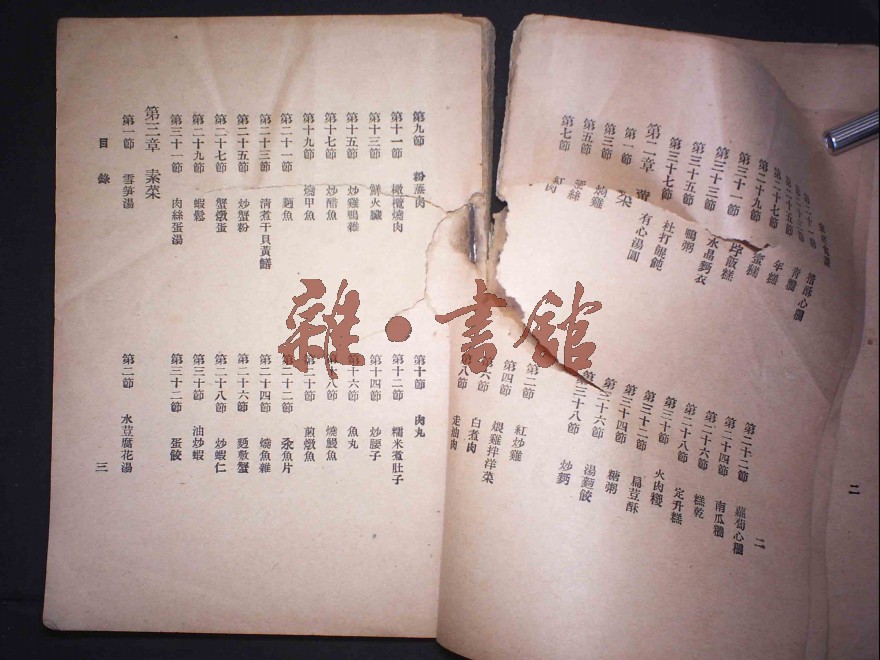 第二十二節 蘿蔔心糰
青糰
第二十四節 南瓜糰
年糕
第二十六節 糕乾
第二十七節
第二十八節 定升糕
第二十九節
第三十節 火肉糉
第三十一節
第三十二節 扁荳酥
第三十三節 水晶麪衣
第三十四節 糖粥
第三十五節 鴨粥
第三十六節 湯麵餃
第三十七節 杜打餛飩
第三十八節 炒麪
有心湯圓
第二章 葷菜
第一節
第二節 紅炒雞
第三節 燒雞
第四節 煨雞拌洋菜
第五節
白煮肉
第七節 紅肉
走油肉
二
第九節 粉蒸肉
第十節 肉丸
第十一節 橄欖燒肉
第十二節 糯米煮肚子
第十三節 鮮火臟
第十四節 炒腰子
第十五節 炒雞鴨雜
第十六節 魚丸
第十七節 炒醋魚
第十八節 燒鰻魚
第十九節 燒甲魚
第二十節 煎燉魚
第二十一節 麵魚
第二十二節 汆魚片
第二十三節 清煮干貝黃鱔
第二十四節 燒魚雜
第二十五節 炒蟹粉
第二十六節 麵敷蟹
第二十七節 蟹燉蛋
第二十八節 炒蝦仁
第二十九節 蝦鬆
第三十節 油炒蝦
第三十一節 肉絲蛋湯
第三十二節 蛋餃
第三章 素菜
第一節 雪笋湯
第二節 水荳腐花湯
目錄
三
二
雜·書館